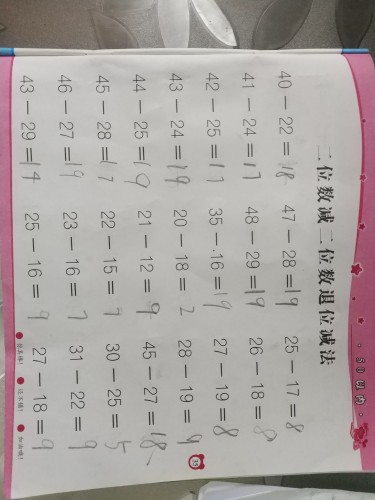 ·50以内·
二位数减二位数退位减法
40－22＝18 47－28＝19 25－17＝8
41－24＝17 48－29＝19 26－18＝8
42－25＝17 35－16＝19 27－19＝8
43－24＝19 20－18＝2 28－19＝9
44－25＝19 21－12＝9 45－27＝18
45－28＝17 22－15＝7 30－25＝5
46－27＝19 23－16＝7 31－22＝9
43－29＝14 25－16＝9 27－18＝9
还不错! 加油哦!